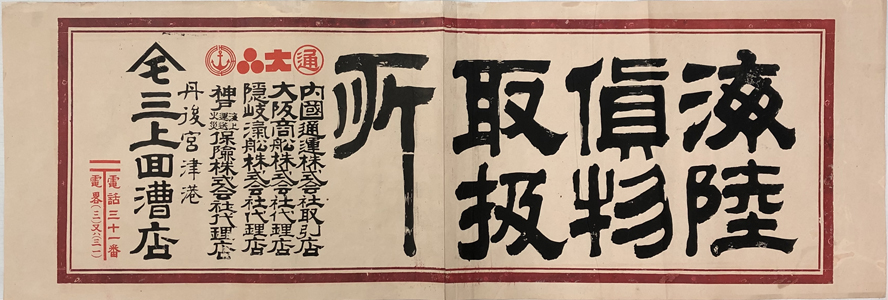 海陸
貨物
取扱
所
通 大
内國通運株式会社取引店
大阪商船株式会社代理店
隠岐滊船株式会社代理店
神戸海上運送火災保険株式会社代理店
丹後宮津港
三上回漕店
電話三十一番